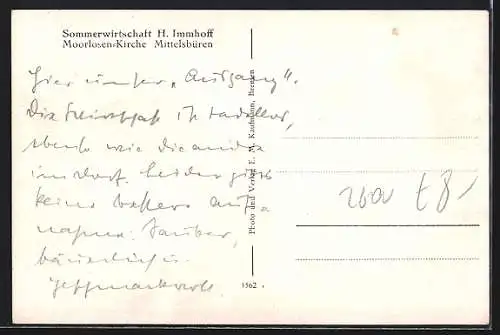 Sommerwirtschaft H. Immhoff
Moorlosen-Kirche Mittelsbüren
Hier unser „Ausgang".
Die Wirtschaft ist tadellos,
ebenso wie die andre
im Dorf. Leider gibt es
keine bessere Auf-
nahme. Sauber,
bäuerlich u.
Photo und Verlag E. M. Kaufmann, Bremen
1562